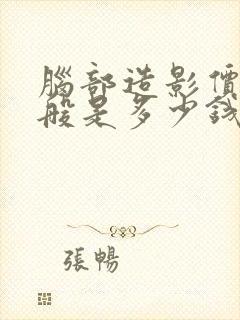 腦部造影價
般是多少錢
張暢